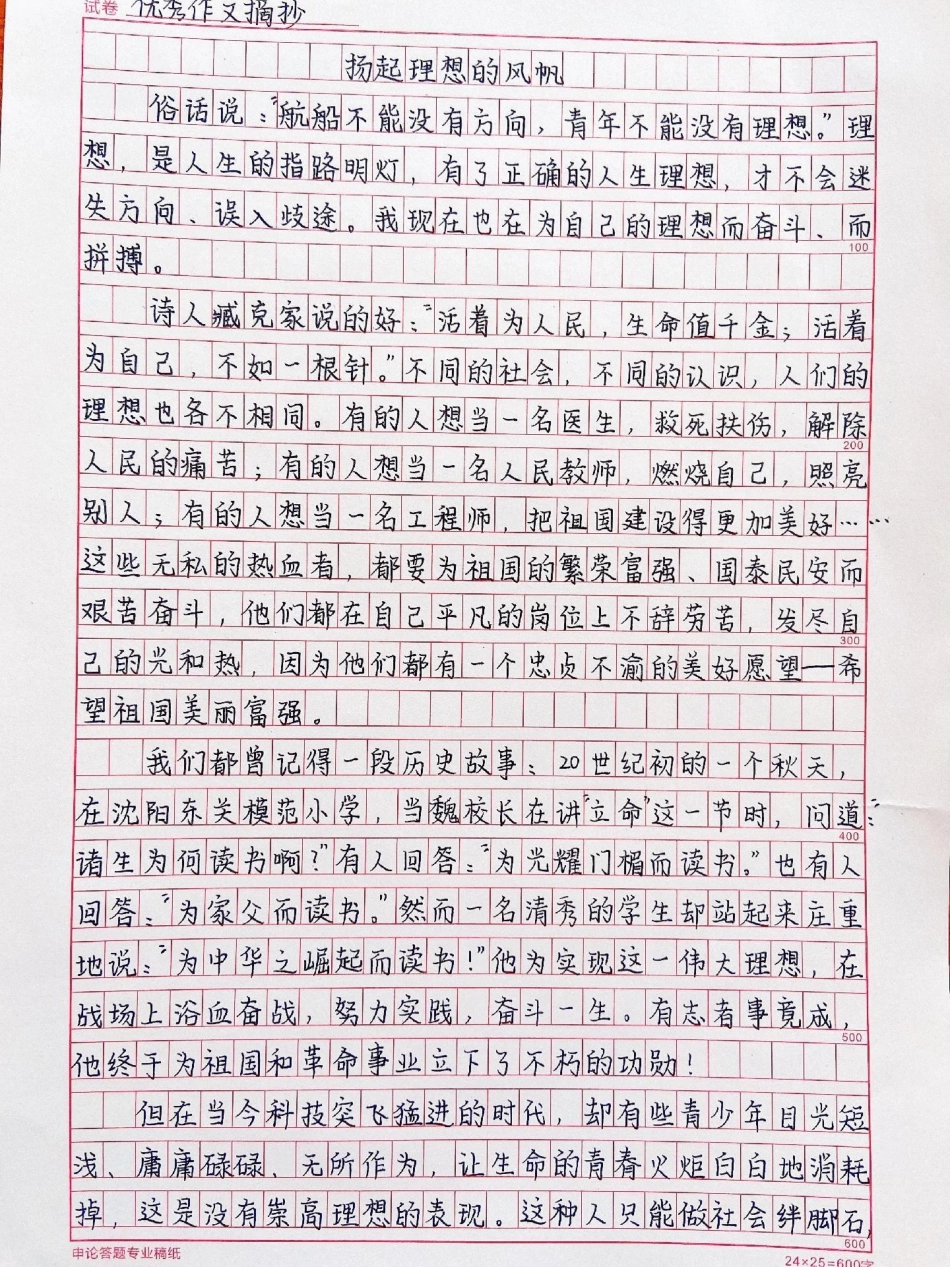 试卷 优秀作文摘抄
扬起理想的风帆
俗话说:“航船不能没有方向,青年不能没有理想。”理
想,是人生的指路明灯,有了正确的人生理想,才不会迷
失方向、误入歧途。我现在也在为自己的理想而奋斗、而
100
拼搏。
诗人臧克家说的好:“活着为人民,生命值千金;活着
为自己,不如一根针。”不同的社会,不同的认识,人们的
理想也各不相同。有的人想当一名医生,救死扶伤,解除
200
人民的痛苦;有的人想当一名人民教师,燃烧自己,照亮
别人;有的人想当一名工程师,把祖国建设得更加美好……
这些无私的热血者,都要为祖国的繁荣富强、国泰民安而
艰苦奋斗,他们都在自己平凡的岗位上不辞劳苦,发尽自
300
己的光和热,因为他们都有一个忠贞不渝的美好愿望—希
望祖国美丽富强。
我们都曾记得一段历史故事:20世纪初的一个秋天,
在沈阳东关模范小学,当魏校长在讲“立命”这一节时,问道:“
400
诸生为何读书啊?”有人回答:“为光耀门楣而读书。”也有人
回答:“为家父而读书。”然而一名清秀的学生却站起来庄重
地说:“为中华之崛起而读书!”他为实现这一伟大理想,在
战场上浴血奋战,努力实践,奋斗一生。有志者事竟成,
500
他终于为祖国和革命事业立下了不朽的功勋!
但在当今科技突飞猛进的时代,却有些青少年目光短
浅、庸庸碌碌、无所作为,让生命的青春火炬白白地消耗
掉,这是没有崇高理想的表现。这种人只能做社会绊脚石,
600
申论答题专业稿纸
24×25=600字